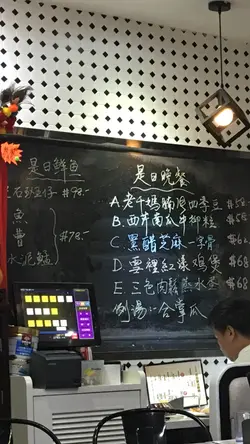 是日鮮魚
石斑仔 $98.-
魚
$78.-
水泥鯭
是日晚餐
A.老干媽腩肉四季豆
B.西末南瓜牛柳粒
C.黑醋芝麻一字骨
D.雪裡紅漢鴿煲 $68
E.三色肉鬆蒸水蛋 $68
例湯:合掌瓜